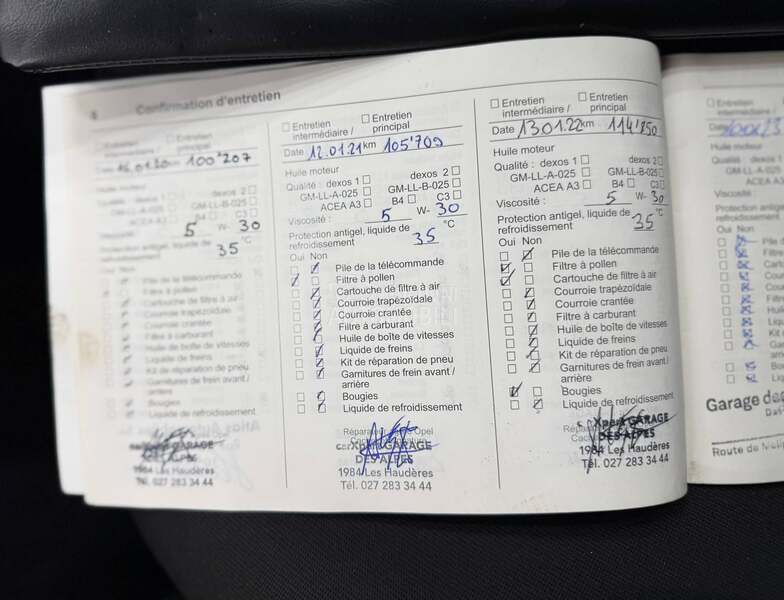 8 Confirmation d'entretien
Entretien intermédiaire /
Entretien principal
Date 16.01.20 km 100'207
Huile moteur
Qualité : dexos 1 dexos 2
GM-LL-A-025 GM-LL-B-025
ACEA A3 B4 C3
Viscosité : 5 W- 30
Protection antigel, liquide de
refroidissement 35 °C
Oui Non
Pile de la télécommande
Filtre à pollen
Cartouche de filtre à air
Courroie trapézoïdale
Courroie crantée
Filtre à carburant
Huile de boîte de vitesses
Liquide de freins
Kit de réparation de pneu
Garnitures de frein avant /
arrière
Bougies
Liquide de refroidissement
GARAGE
1984 Les Haudères
Tél. 027 283 34 44
Entretien intermédiaire /
Entretien principal
Date 12.01.21 km 105'709
Huile moteur
Qualité : dexos 1 dexos 2
GM-LL-A-025 GM-LL-B-025
ACEA A3 B4 C3
Viscosité : 5 W- 30
Protection antigel, liquide de
refroidissement 35 °C
Oui Non
Pile de la télécommande
Filtre à pollen
Cartouche de filtre à air
Courroie trapézoïdale
Courroie crantée
Filtre à carburant
Huile de boîte de vitesses
Liquide de freins
Kit de réparation de pneu
Garnitures de frein avant /
arrière
Bougies
Liquide de refroidissement
Opel
GARAGE
DES ALPES
1984 Les Haudères
Tél. 027 283 34 44
Entretien intermédiaire /
Entretien principal
Date 13.01.22 km 114'250
Huile moteur
Qualité : dexos 1 dexos 2
GM-LL-A-025 GM-LL-B-025
ACEA A3 B4 C3
Viscosité : 5 W- 30
Protection antigel, liquide de
refroidissement 35 °C
Oui Non
Pile de la télécommande
Filtre à pollen
Cartouche de filtre à air
Courroie trapézoïdale
Courroie crantée
Filtre à carburant
Huile de boîte de vitesses
Liquide de freins
Kit de réparation de pneu
Garnitures de frein avant /
arrière
Bougies
Liquide de refroidissement
GARAGE
DES ALPES
1984 Les Haudères
Tél. 027 283 34 44
Huile moteur
Qualité : dexos
GM-LL-A-
ACEA
Viscosité :
Protection anti
refroidissement
Oui Non
Garage de
Route de